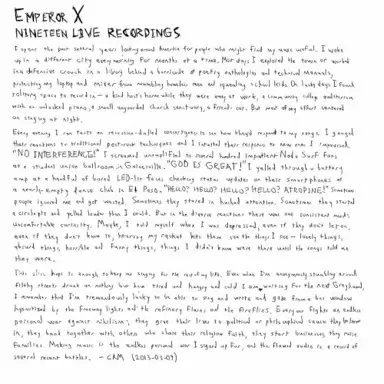 EMPEROR X
NINETEEN LIVE RECORDINGS
I spent the past several years looking around America for people who might find my songs useful. I woke
up in a different city every morning for months at a time. Most days I explored the town or worked
in a defensive crouch in a library behind a barricade of poetry anthologies and technical manuals,
protecting my laptop and mixer from rambling homeless men and squealing school kids. On lucky days I found
solitary space to record in — a kind host's home while they were at work, a community college auditorium
with an unlocked piano, a small unguarded church sanctuary, a friend's car. But most of my effort centered
on singing at night.
Every evening I ran tests on
to see how they'd respond to my songs. I gauged
their reactions to traditional post-verse techniques and I
their response to new ones I improvised.
"NO INTERFERENCE!" I screamed unamplified to several hundred impatient Nada Surf fans
at a student union ballroom in Gainesville. "GOD IS GREAT!" I yelled through a battery
amp at a handful of bored LED-lit faces checking status updates on their smartphones at
a nearly empty dance club in El Paso. "HELLO? HELLO? HELLO? HELLO? ATROPINE!" Sometimes
people ignored me and got wasted. Sometimes they stared in hushed attention. Sometimes they started
a circle pit and yelled louder than I could. But in the diverse reactions there was one consistent mood:
uncomfortable curiosity. Maybe, I told myself when I was depressed, even if they don't listen,
even if they don't know it, hearing my racket lets them see the things I see — lovely things,
absurd things, horrible and funny things, things I didn't know were there until the songs told me
they were.
This gives hope enough to keep me singing for the rest of my life. Even when I'm anonymously stumbling around
filthy streets drunk on nothing but how tired and hungry and cold I am waiting for the next Greyhound,
I remember that I'm tremendously lucky to be able to sing and write and gaze from a bus window
hypnotized by the freeway lights and the refinery flares and the fireflies. Everyone fights an endless
personal war against nihilism; they give their lives to political or philosophical causes they believe
in, they band together with others who share their religious faith, they start businesses, they raise
families. Making music is the endless personal war I signed up for, and the flawed audio is a record of
several recent battles. — CRM (2013-01-09)